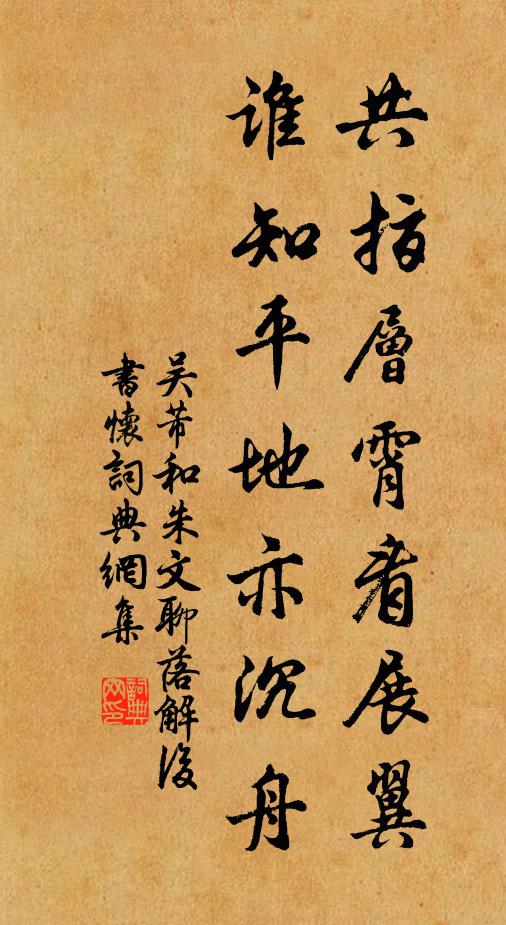 共指層霄看展翼
誰知平地亦沉舟
吴芾和朱文聊落解後
書懷詞典網集
詞典網印